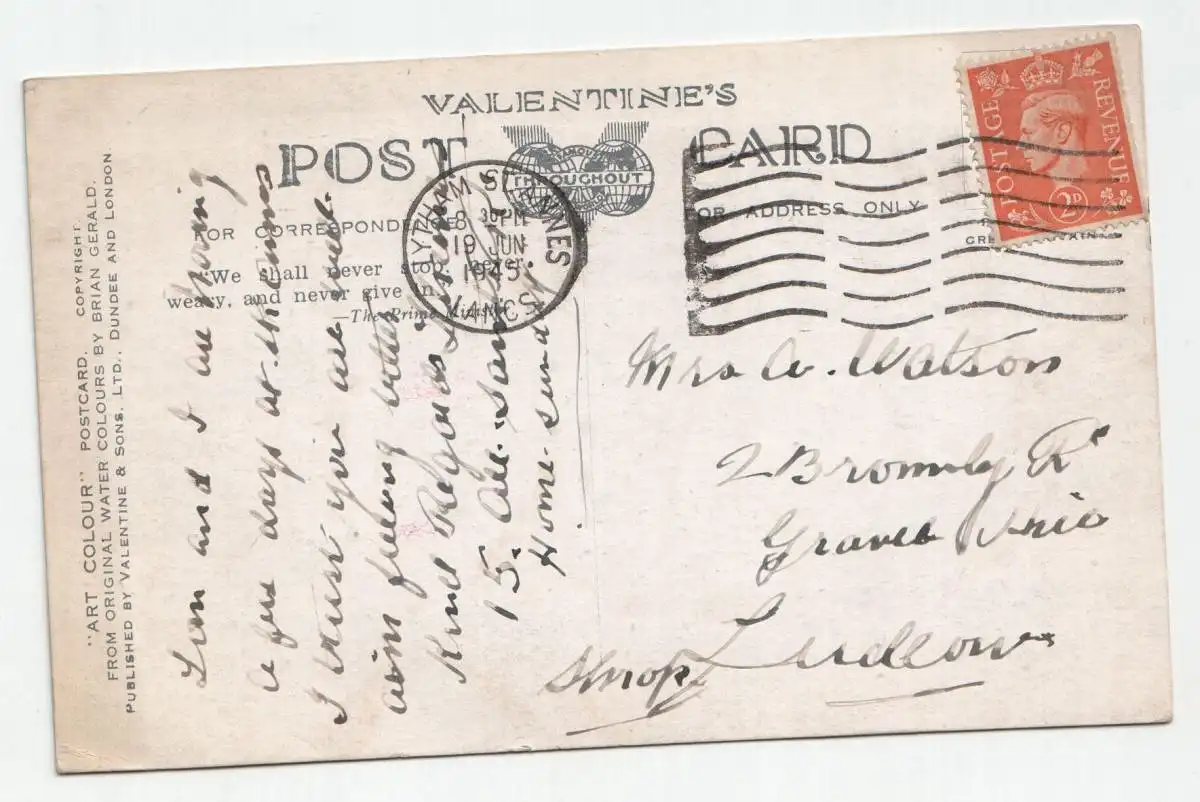 VALENTINE'S
POST CARD
FAMOUS THROUGHOUT THE WORLD
FOR CORRESPONDENCE
FOR ADDRESS ONLY
"We shall never stop, never
weary, and never give in."
—The Prime Minister
LYTHAM ST. ANNES
8 30 PM
19 JUN
1945
LANCS.
POSTAGE REVENUE
2D
GREAT BRITAIN
"ART COLOUR" POSTCARD. COPYRIGHT.
FROM ORIGINAL WATER COLOURS BY BRIAN GERALD.
PUBLISHED BY VALENTINE & SONS, LTD., DUNDEE AND LONDON.
and I are having
a few days at St. Annes
I trust you are quite
feeling better
Kind Regards
15.
Home Sunday
Mrs A. Watson
2 Bromley Rd
Gravel
Ludlow
Shrop